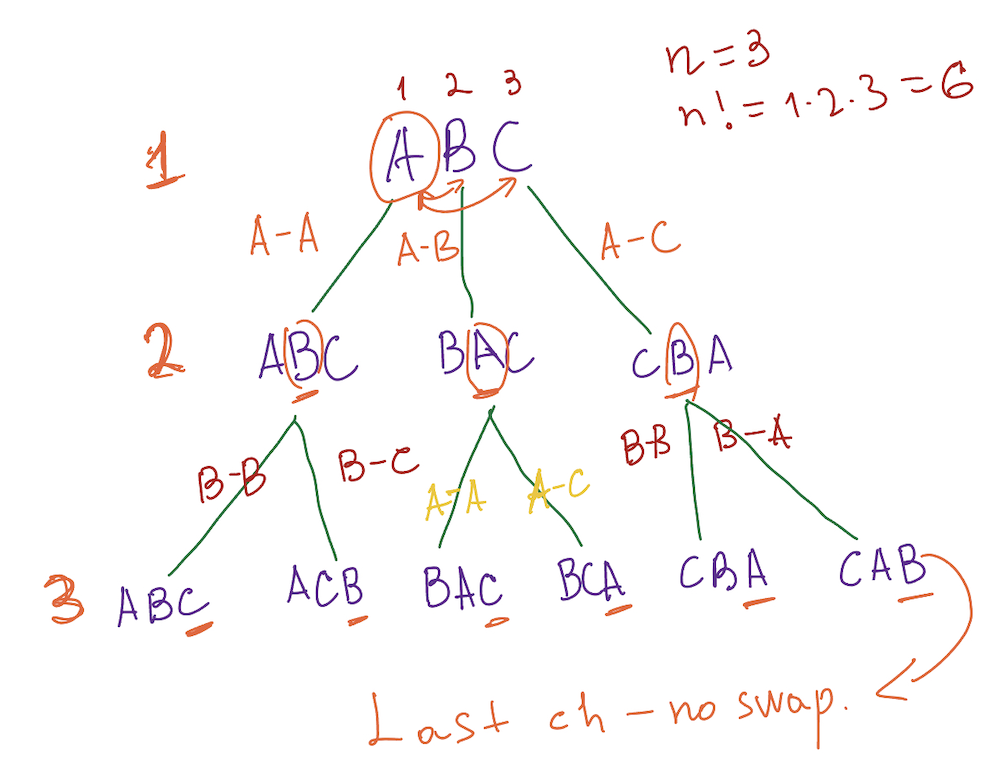 n=3
n!= 1·2·3 = 6
1 2 3
1
A B C
A-A
A-B
A-C
2
ABC
BAC
CBA
B-B
B-C
A-A
A-C
B-B
B-A
3
ABC
ACB
BAC
BCA
CBA
CAB
Last ch - no swap.